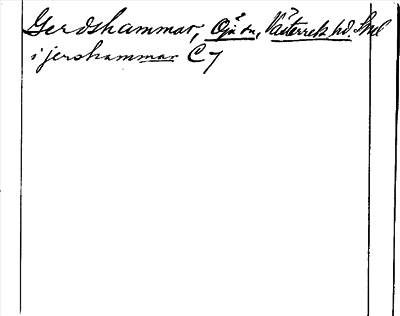 Gerdshammar, Öja sn, Västerrek hd. Smel
i jershammar C7